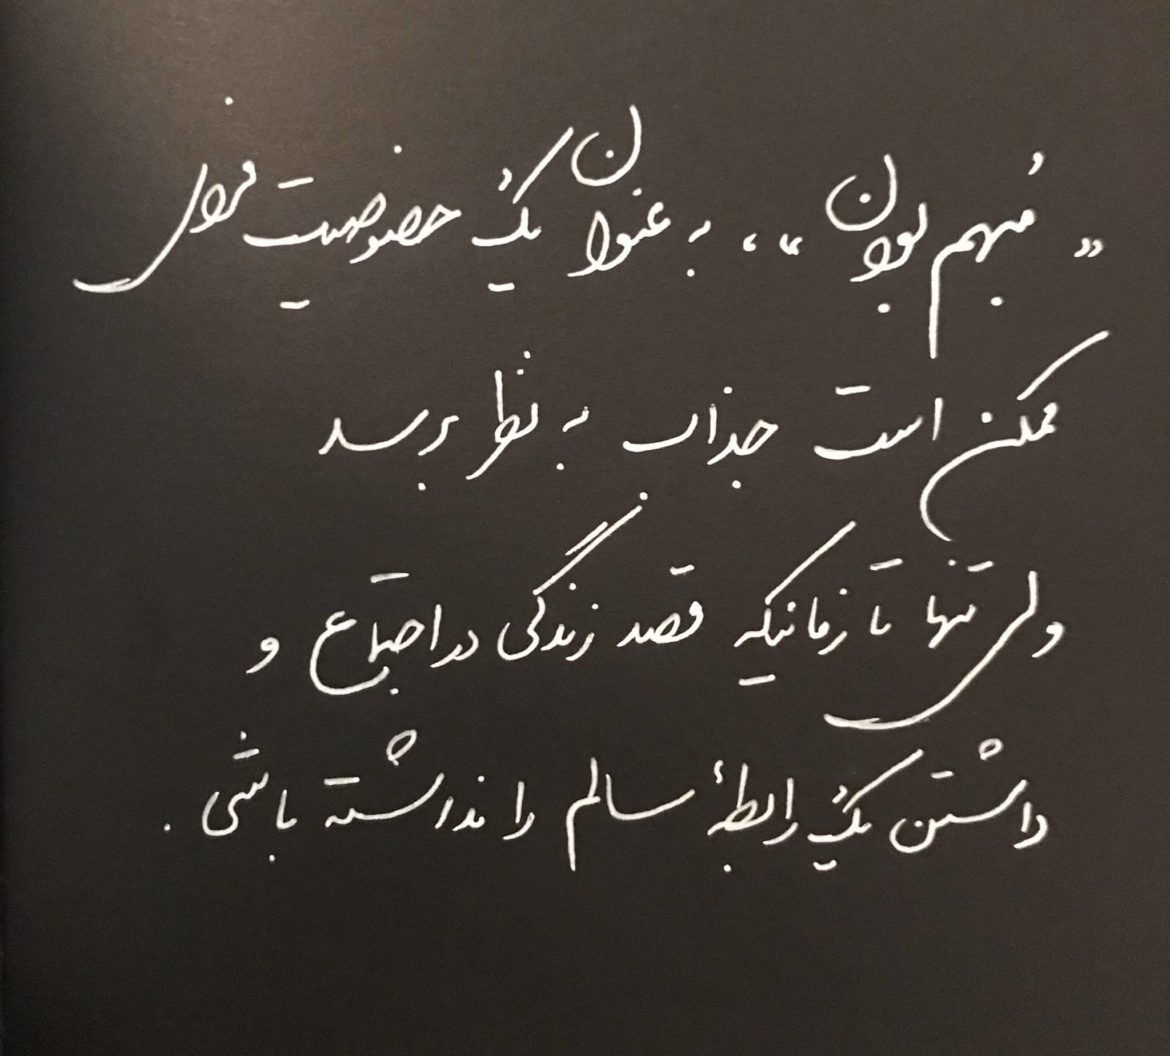 «مُبهم بودن»، به عنوان یک خصوصیت فردی
ممکن است جذاب به نظر برسد
ولی تنها تا زمانیکه قصد زندگی در اجتماع و
داشتن یک رابطهٔ سالم را نداشته باشی.